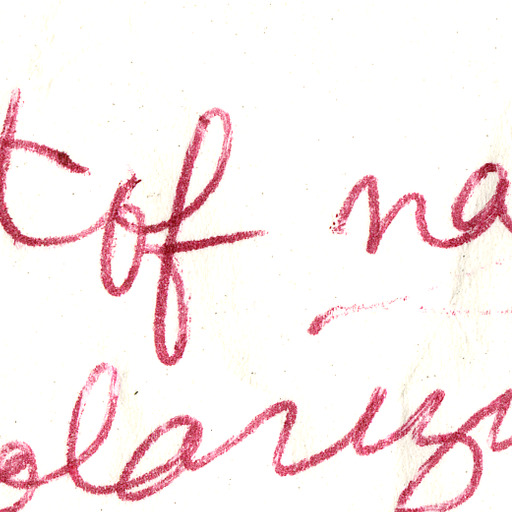 t of na
olariz